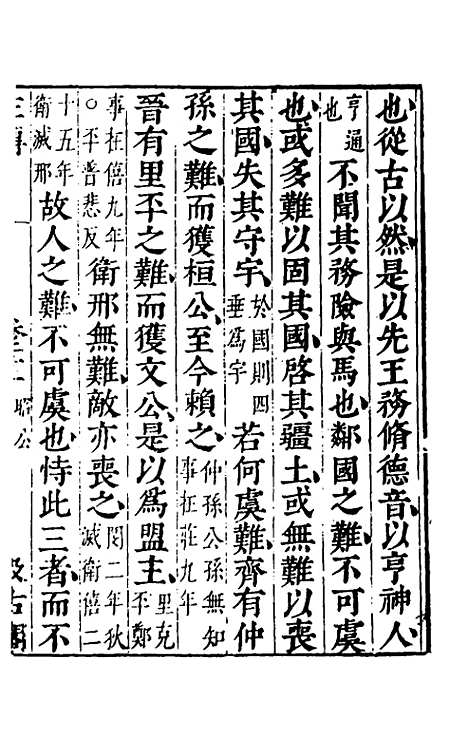 也從古以然是以先王務脩德音以亨神人
亨通也不聞其務險與馬也鄰國之難不可虞
也或多難以固其國啓其疆土或無難以喪
其國失其守宇於國則四垂爲宇若何虞難齊有仲
孫之難而獲桓公至今賴之仲孫公孫無知事在莊九年
晉有里丕之難而獲文公是以爲盟主里克丕鄭
事在僖九年○丕普悲反衛邢無難敵亦喪之閔二年狄滅衛僖二
十五年衛滅邢故人之難不可虞也恃此三者而不
昭公
汲古閣